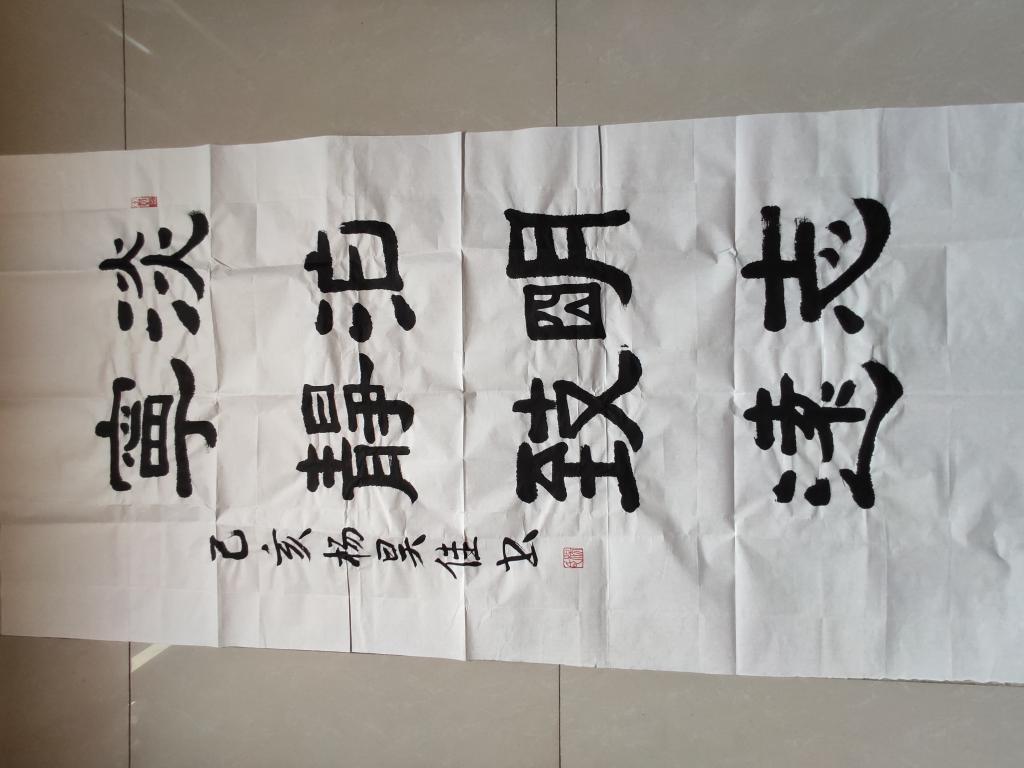 淡泊明志
寧靜致遠
己亥杨昊佳书